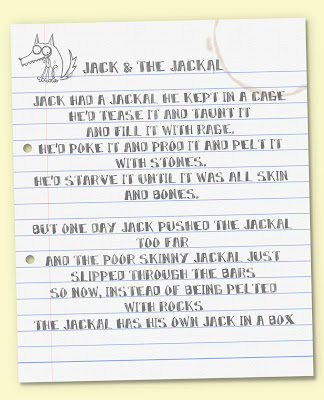 JACK & THE JACKAL
JACK HAD A JACKAL HE KEPT IN A CAGE
HE'D TEASE IT AND TAUNT IT
AND FILL IT WITH RAGE.
HE'D POKE IT AND PROD IT AND PELT IT
WITH STONES.
HE'D STARVE IT UNTIL IT WAS ALL SKIN
AND BONES.
BUT ONE DAY JACK PUSHED THE JACKAL
TOO FAR
AND THE POOR SKINNY JACKAL JUST
SLIPPED THROUGH THE BARS
SO NOW, INSTEAD OF BEING PELTED
WITH ROCKS
THE JACKAL HAS HIS OWN JACK IN A BOX